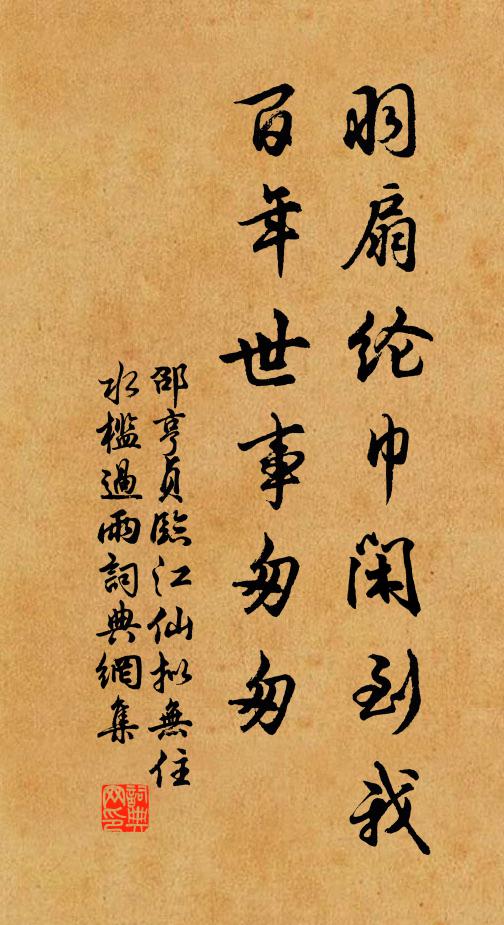 羽扇纶巾闲到我
百年世事匆匆
邵亨貞臨江仙拟無住
水檻過雨詞典網集
詞典网印